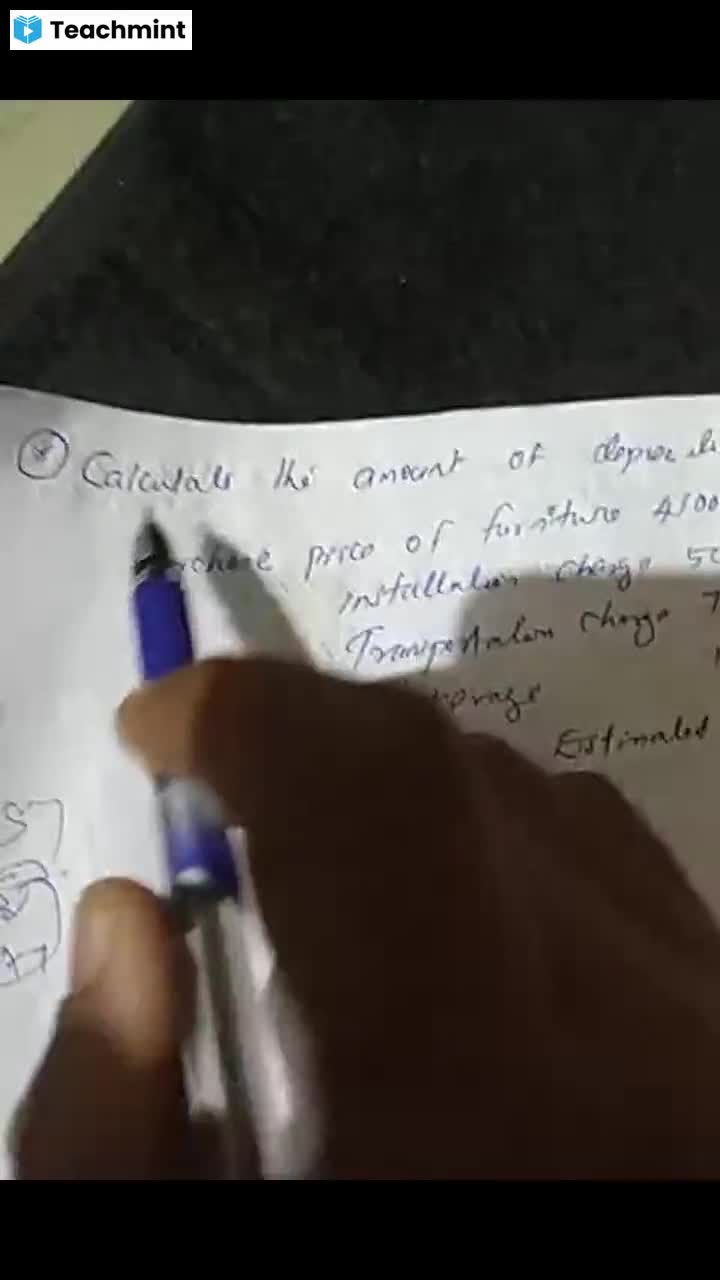 Teachmint
Calculate the amount of
price of furniture 4100
installation charge 50
Transportation charge 7
Estimated
57